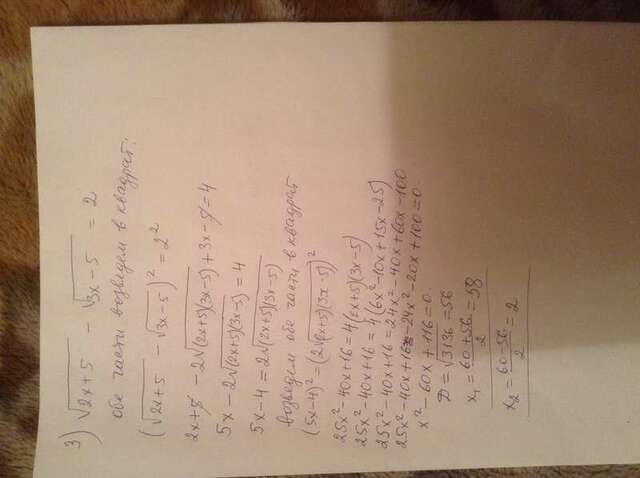 3) √2x+5 − √3x−5 = 2
обе части возведем в квадрат:
(√2x+5 − √3x−5)² = 2²
2x+5 − 2√(2x+5)(3x−5) + 3x−5 = 4
5x − 2√(2x+5)(3x−5) = 4
5x−4 = 2√(2x+5)(3x−5)
возведем обе части в квадрат
(5x−4)² = (2√(2x+5)(3x−5))²
25x²−40x+16 = 4(2x+5)(3x−5)
25x²−40x+16 = 4(6x²−10x+15x−25)
25x²−40x+16 = 24x²−40x+60x−100
25x²−40x+16−24x²−20x+100=0
x²−60x+116=0
D = √3136 = 56
x₁ = (60+56)/2 = 58
x₂ = (60−56)/2 = 2